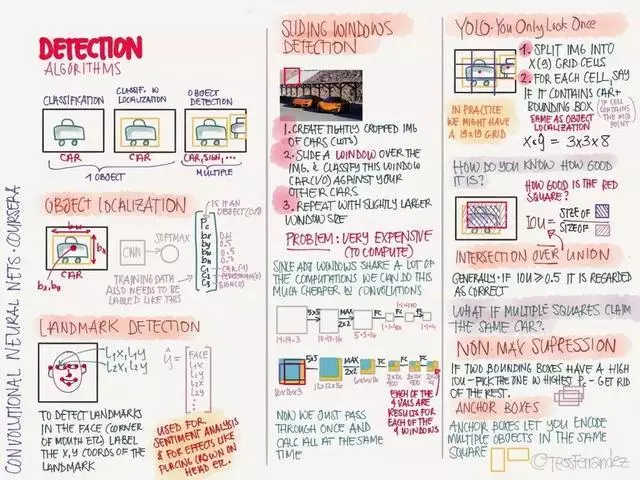 CONVOLUTIONAL NEURAL NETS : COURSERA
DETECTION
ALGORITHMS
CLASSIFICATION
CLASSIF. W
LOCALIZATION
OBJECT
DETECTION
CAR
CAR
CAR, SIGN, ...
1 OBJECT
MULTIPLE
OBJECT LOCALIZATION
bw
bh
CAR
bx, by
CNN
SOFTMAX
IS IT AN
OBJECT
TRAINING DATA
ALSO NEEDS TO BE
LABELED LIKE THIS
LANDMARK DETECTION
L1X, L1Y
L2X, L2Y
ŷ =
FACE
L1X
L1Y
L2X
L2Y
TO DETECT LANDMARKS
IN THE FACE (CORNER
OF MOUTH ETC) LABEL
THE X,Y COORDS OF THE
LANDMARK
USED FOR
SENTIMENT ANALYSIS
& FOR EFFECTS LIKE
PLACING CROWN ON
HEAD ETC.
SLIDING WINDOWS
DETECTION
1. CREATE TIGHTLY CROPPED IMG
OF CARS (LOTS)
2. SLIDE A WINDOW OVER THE
IMG. & CLASSIFY THIS WINDOW
CAR(1/0) AGAINST YOUR
OTHER CARS
3. REPEAT WITH SLIGHTLY LARGER
WINDOW SIZE
PROBLEM : VERY EXPENSIVE
(TO COMPUTE)
SINCE ADJ WINDOWS SHARE A LOT OF
THE COMPUTATIONS WE CAN DO THIS
MUCH CHEAPER W CONVOLUTIONS
5x5
MAX
2x2
FC
FC
14×14×3
10×10×16
5×5×16
5x5
MAX
2x2
FC
FC
FC
16×16×3
12×12×16
6×6×16
EACH OF THE
4 VALS ARE
RESULTS FOR
EACH OF THE
4 WINDOWS
NOW WE JUST PASS
THROUGH ONCE AND
CALC ALL AT THE SAME
TIME
YOLO · You Only Look Once
1. SPLIT IMG INTO
X(9) GRID CELLS
2. FOR EACH CELL, SAY
IF IT CONTAINS CAR +
BOUNDING BOX
(IF CELL
CONTAINS THE
MID POINT)
SAME AS OBJECT
LOCALIZATION
IN PRACTICE
WE MIGHT HAVE
A 19×19 GRID
= 3x3x8
HOW DO YOU KNOW HOW GOOD
IT IS?
HOW GOOD IS THE RED
SQUARE?
IOU =
SIZE OF
SIZE OF
INTERSECTION OVER UNION
GENERALLY · IF IOU ≥ 0.5 IT IS REGARDED
AS CORRECT
WHAT IF MULTIPLE SQUARES CLAIM
THE SAME CAR?
NON-MAX SUPRESSION
IF TWO BOUNDING BOXES HAVE A HIGH
IOU - PICK THE ONE W HIGHEST Pc - GET RID
OF THE REST.
ANCHOR BOXES
ANCHOR BOXES LET YOU ENCODE
MULTIPLE OBJECTS IN THE SAME
SQUARE
@TessFerrandez